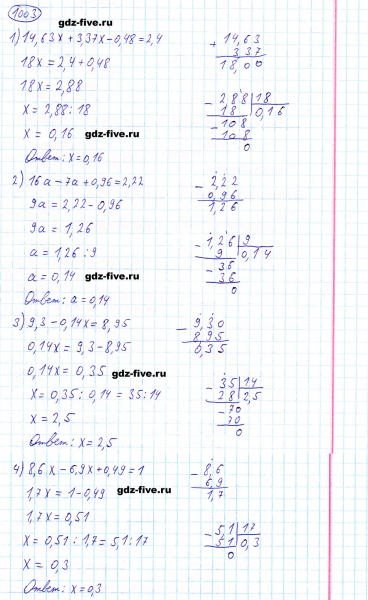 1003
gdz-five.ru
1) 14,63x + 3,37x - 0,48 = 2,4
18x = 2,4 + 0,48
18x = 2,88
x = 2,88 : 18
x = 0,16
gdz-five.ru
Ответ: x = 0,16
+ 14,63
3,37
18,00
- 2,88 | 18
18 | 0,16
- 108
108
0
2) 16a - 7a + 0,96 = 2,22
9a = 2,22 - 0,96
9a = 1,26
a = 1,26 : 9
a = 0,14
gdz-five.ru
Ответ: a = 0,14
- 2,22
0,96
1,26
- 1,26 | 9
9 | 0,14
- 36
36
0
3) 9,3 - 0,14x = 8,95
0,14x = 9,3 - 8,95
0,14x = 0,35
gdz-five.ru
x = 0,35 : 0,14 = 35 : 14
x = 2,5
Ответ: x = 2,5
- 9,30
8,95
0,35
- 35 | 14
28 | 2,5
- 70
70
0
4) 8,6x - 6,9x + 0,49 = 1
1,7x = 1 - 0,49
gdz-five.ru
1,7x = 0,51
x = 0,51 : 1,7 = 5,1 : 17
x = 0,3
Ответ: x = 0,3
- 8,6
6,9
1,7
- 5,1 | 17
51 | 0,3
0